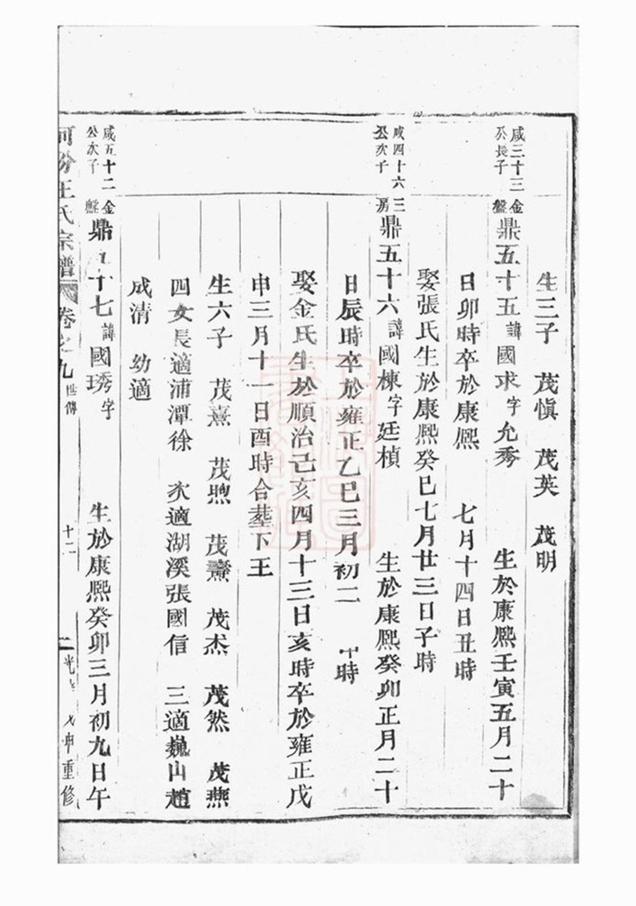 生三子 茂愼 茂英 茂明
咸三十三金
公長子 盤
鼎五十五諱國求字允秀 生於康熙壬寅五月二十
日卯時卒於康熙 七月十四日丑時
娶張氏生於康熙癸巳七月廿三日子時
咸四十六三
公次子 房
鼎五十六諱國棟字廷楨 生於康熙癸卯正月二十
日辰時卒於雍正乙巳三月初二 時
娶金氏生於順治己亥四月十三日亥時卒於雍正戊
申三月十一日酉時合塟下王
生六子 茂熹 茂煦 茂燾 茂杰 茂然 茂燕
四女長適浦潭徐 次適湖溪張國信 三適巍山趙
成清 幼適
咸五十二金
公次子 盤
鼎五十七諱國琇字 生於康熙癸卯三月初九日午
河汾王氏宗譜 卷之九 世傳 十二 光 申重修